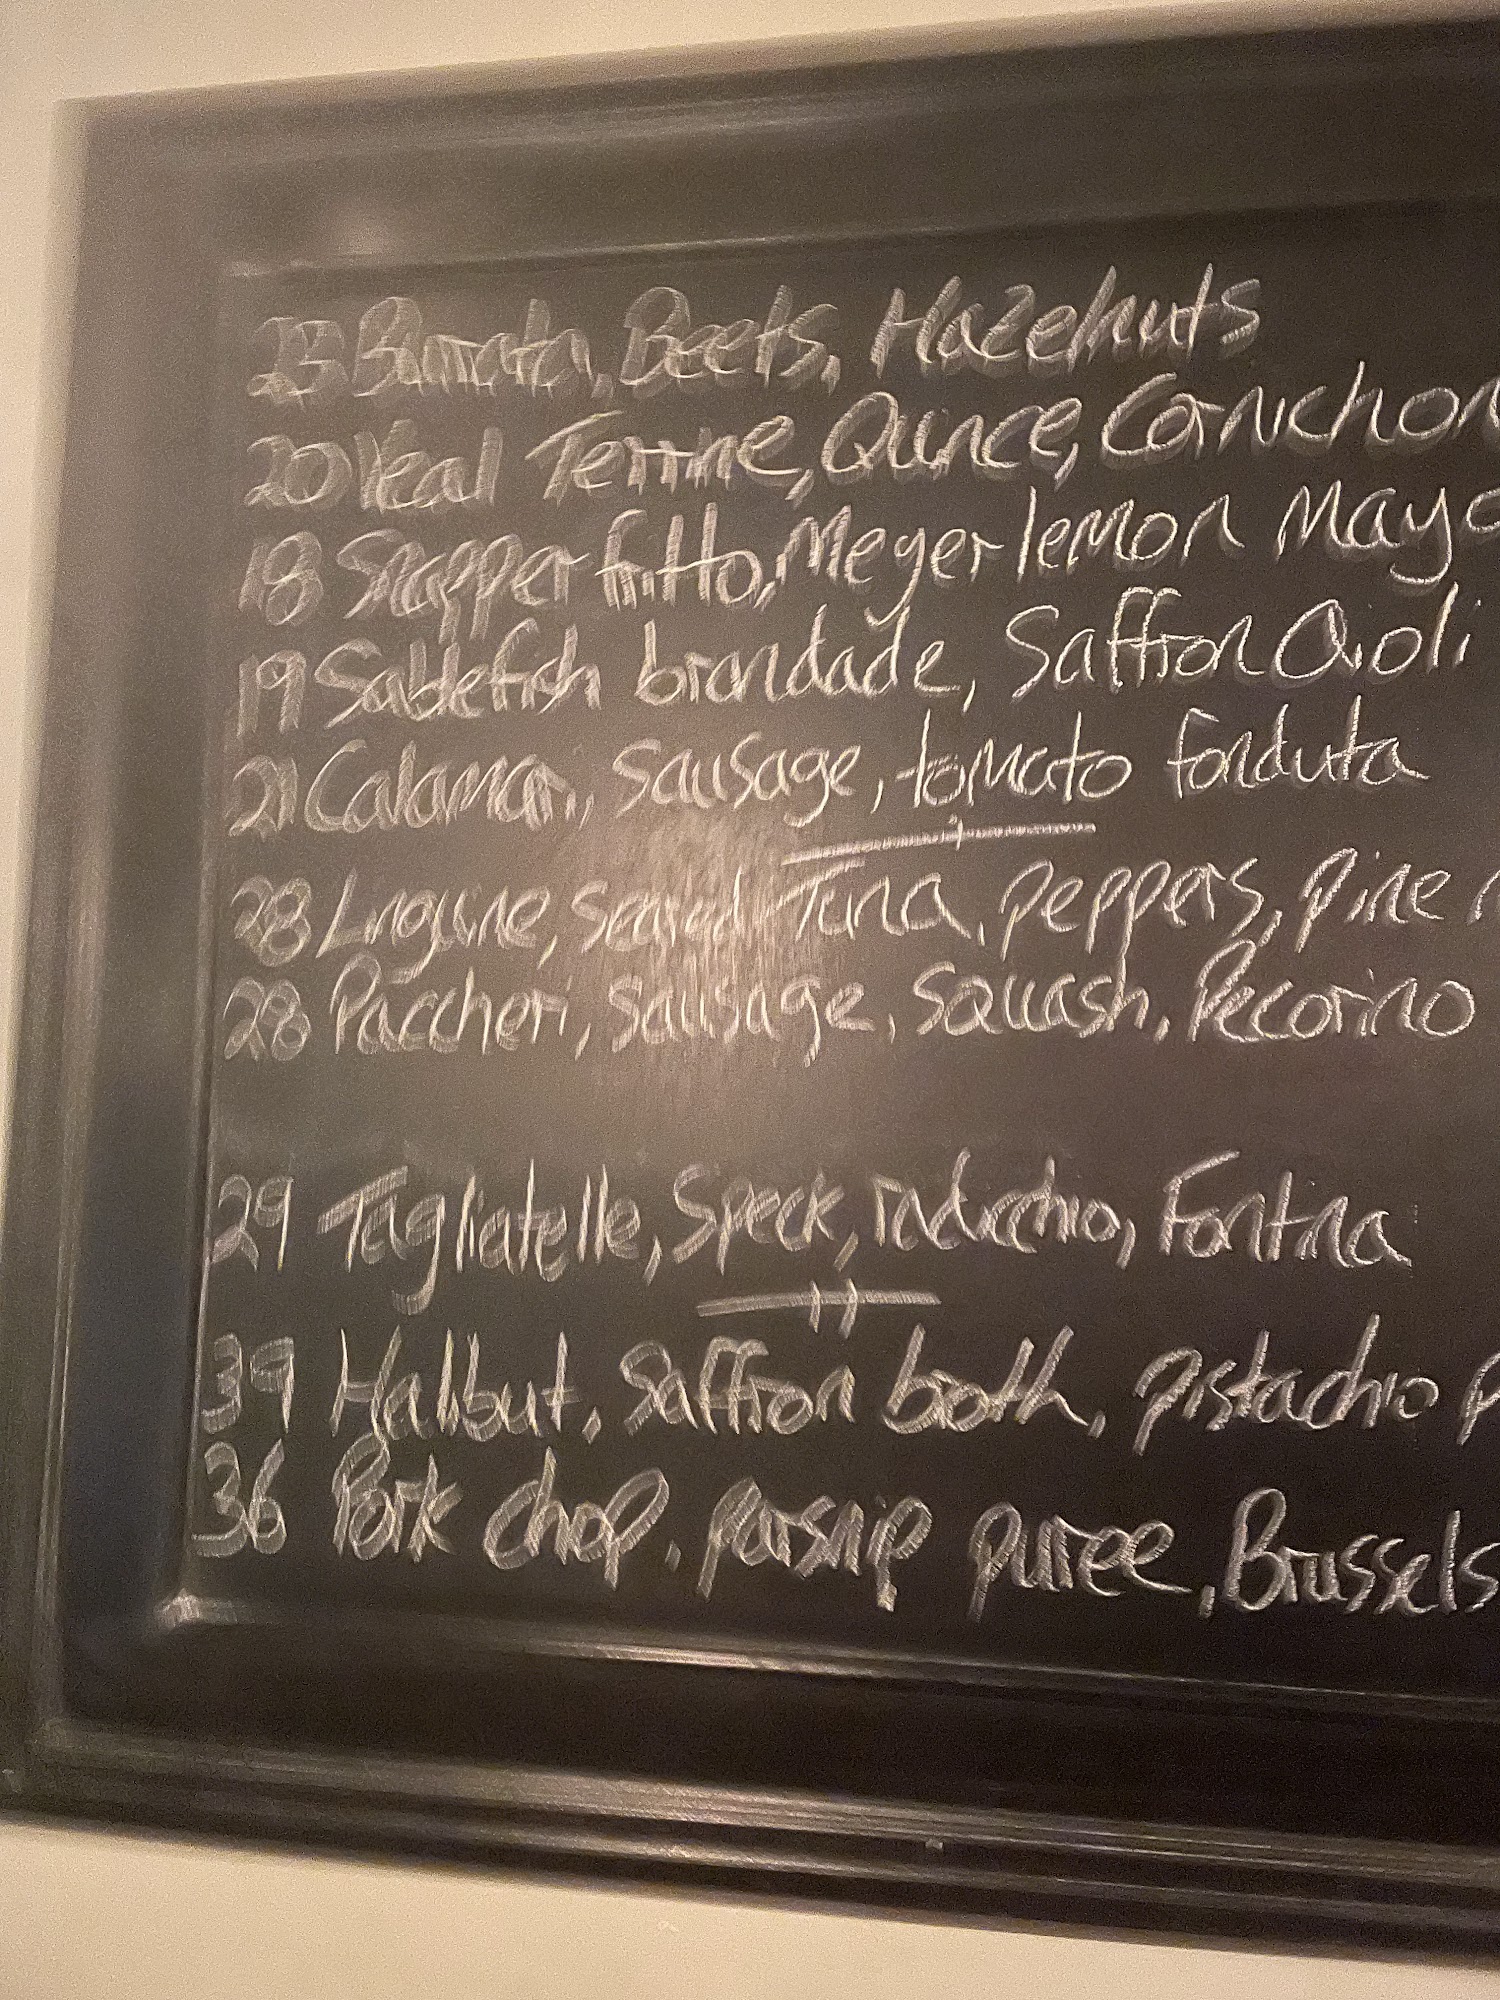 23 Burrata, Beets, Hazelnuts
20 Veal Terrine, Quince, Cornichon
18 Snapper fritto, Meyer lemon Mayo
19 Sablefish brandade, Saffron Aioli
21 Calamari, Sausage, tomato fonduta
28 Linguine, Seared Tuna, peppers, pine
28 Paccheri, Sausage, Squash, Pecorino
29 Tagliatelle, Speck, radicchio, Fontina
39 Halibut, Saffron broth, pistachio p
36 Pork chop, parsnip puree, Brussels